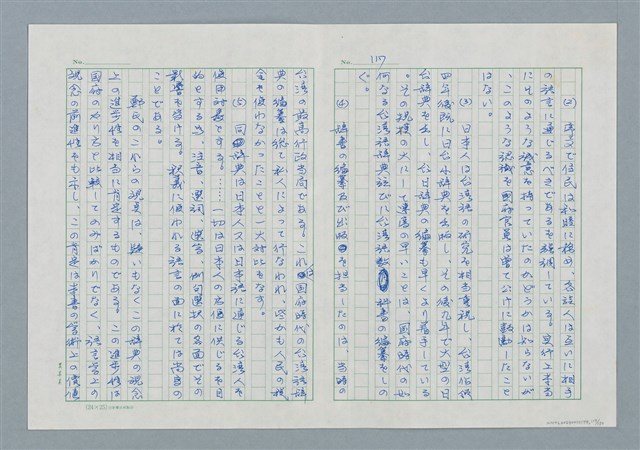 No. 117
(2) 序文で住民は和睦に務め、各族人は互いに相手
の語言に通じるべきであるを強調している。実行上本当
にそのような誠意を持っていたのかどうかは知らないが
、このような認識を国府官員は曽て公けに勧励したこと
はない。
(3) 日本人は台湾語の研究を相当重視し、台湾佔領
四年後既に日台小辞典を出版し、その後九年で大型の日
台辞典を出し、台日辞典の編纂も早くより着手している
。その規模の大にして速度の早いことは、国府時代の如
何なる台湾語辞典並びに台湾語教科書の編纂をしの
ぐ。
(4) 辞書の編纂及び出版を担当したのは 当時の
No.
台湾の最高行政当局であり、これは国府時代の台湾語辞
典の編纂は総て私人によって行なわれ、些かも人民の税
金を使わなかったことと、大対比をなす。
(5) 同辞典は日本人又は日本語に通じる台湾人を
使用対象とする。……一切は日本人の佔便に供じるを目
的とする為、注音、選詞、選字、例句選択の各面でその
影響を受ける。釈義に使われる語言の面に於ては尚更の
ことである。
鄭氏のこれらの説見は、疑いもなくこの辞典の観念
上の進歩性を相当に肯定するものである。この進歩性は
国府のやり方と比較してのみばかりでなく、語言学上の
観念の前進性をも示し、この肯定は本書の学術上の価値
(25×12)